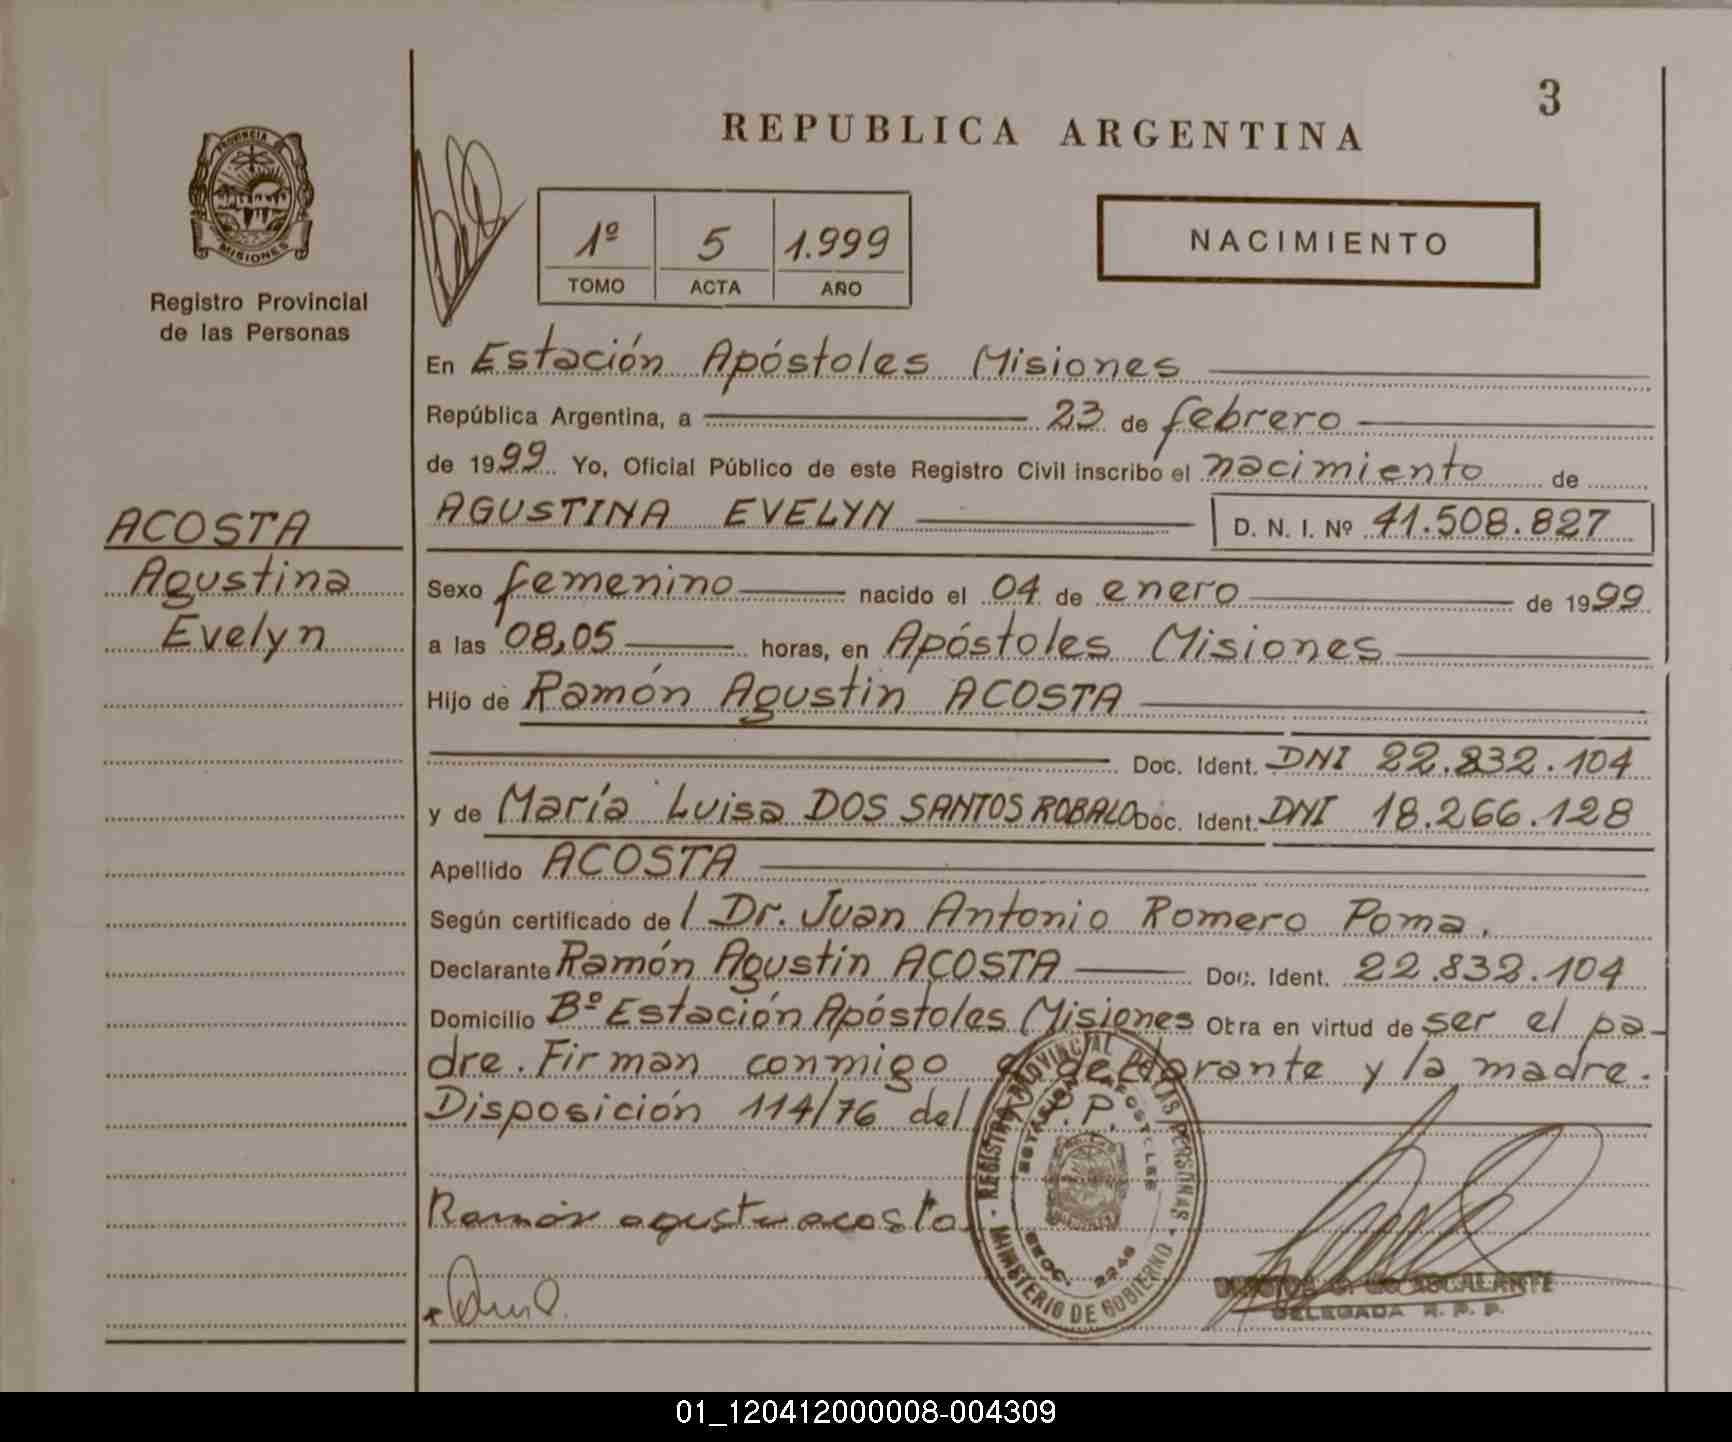 3
REPUBLICA ARGENTINA
PROVINCIA DE
MISIONES
Registro Provincial
de las Personas
1º 5 1.999
TOMO ACTA AÑO
NACIMIENTO
En Estación Apóstoles Misiones
República Argentina, a 23 de febrero
de 1999 Yo, Oficial Público de este Registro Civil inscribo el nacimiento de
ACOSTA
Agustina
Evelyn
AGUSTINA EVELYN D. N. I. Nº 41.508.827
Sexo femenino nacido el 04 de enero de 1999
a las 08,05 horas, en Apóstoles Misiones
Hijo de Ramón Agustin ACOSTA
Doc. Ident. DNI 22.832.104
y de María Luisa DOS SANTOS ROBALO Doc. Ident. DNI 18.266.128
Apellido ACOSTA
Según certificado de l Dr. Juan Antonio Romero Poma.
Declarante Ramón Agustin ACOSTA Doc. Ident. 22.832.104
Domicilio Bº Estación Apóstoles Misiones Obra en virtud de ser el pa-
dre. Firman conmigo el declarante y la madre.
Disposición 114/76 del R.P.P.
REGISTRO PROVINCIAL DE LAS PERSONAS
MINISTERIO DE GOBIERNO
ESTACION APOSTOLES
SECC. 2246
Ramón agustin acosta
ESCALANTE
DELEGADA R. P. P.
01_120412000008-004309